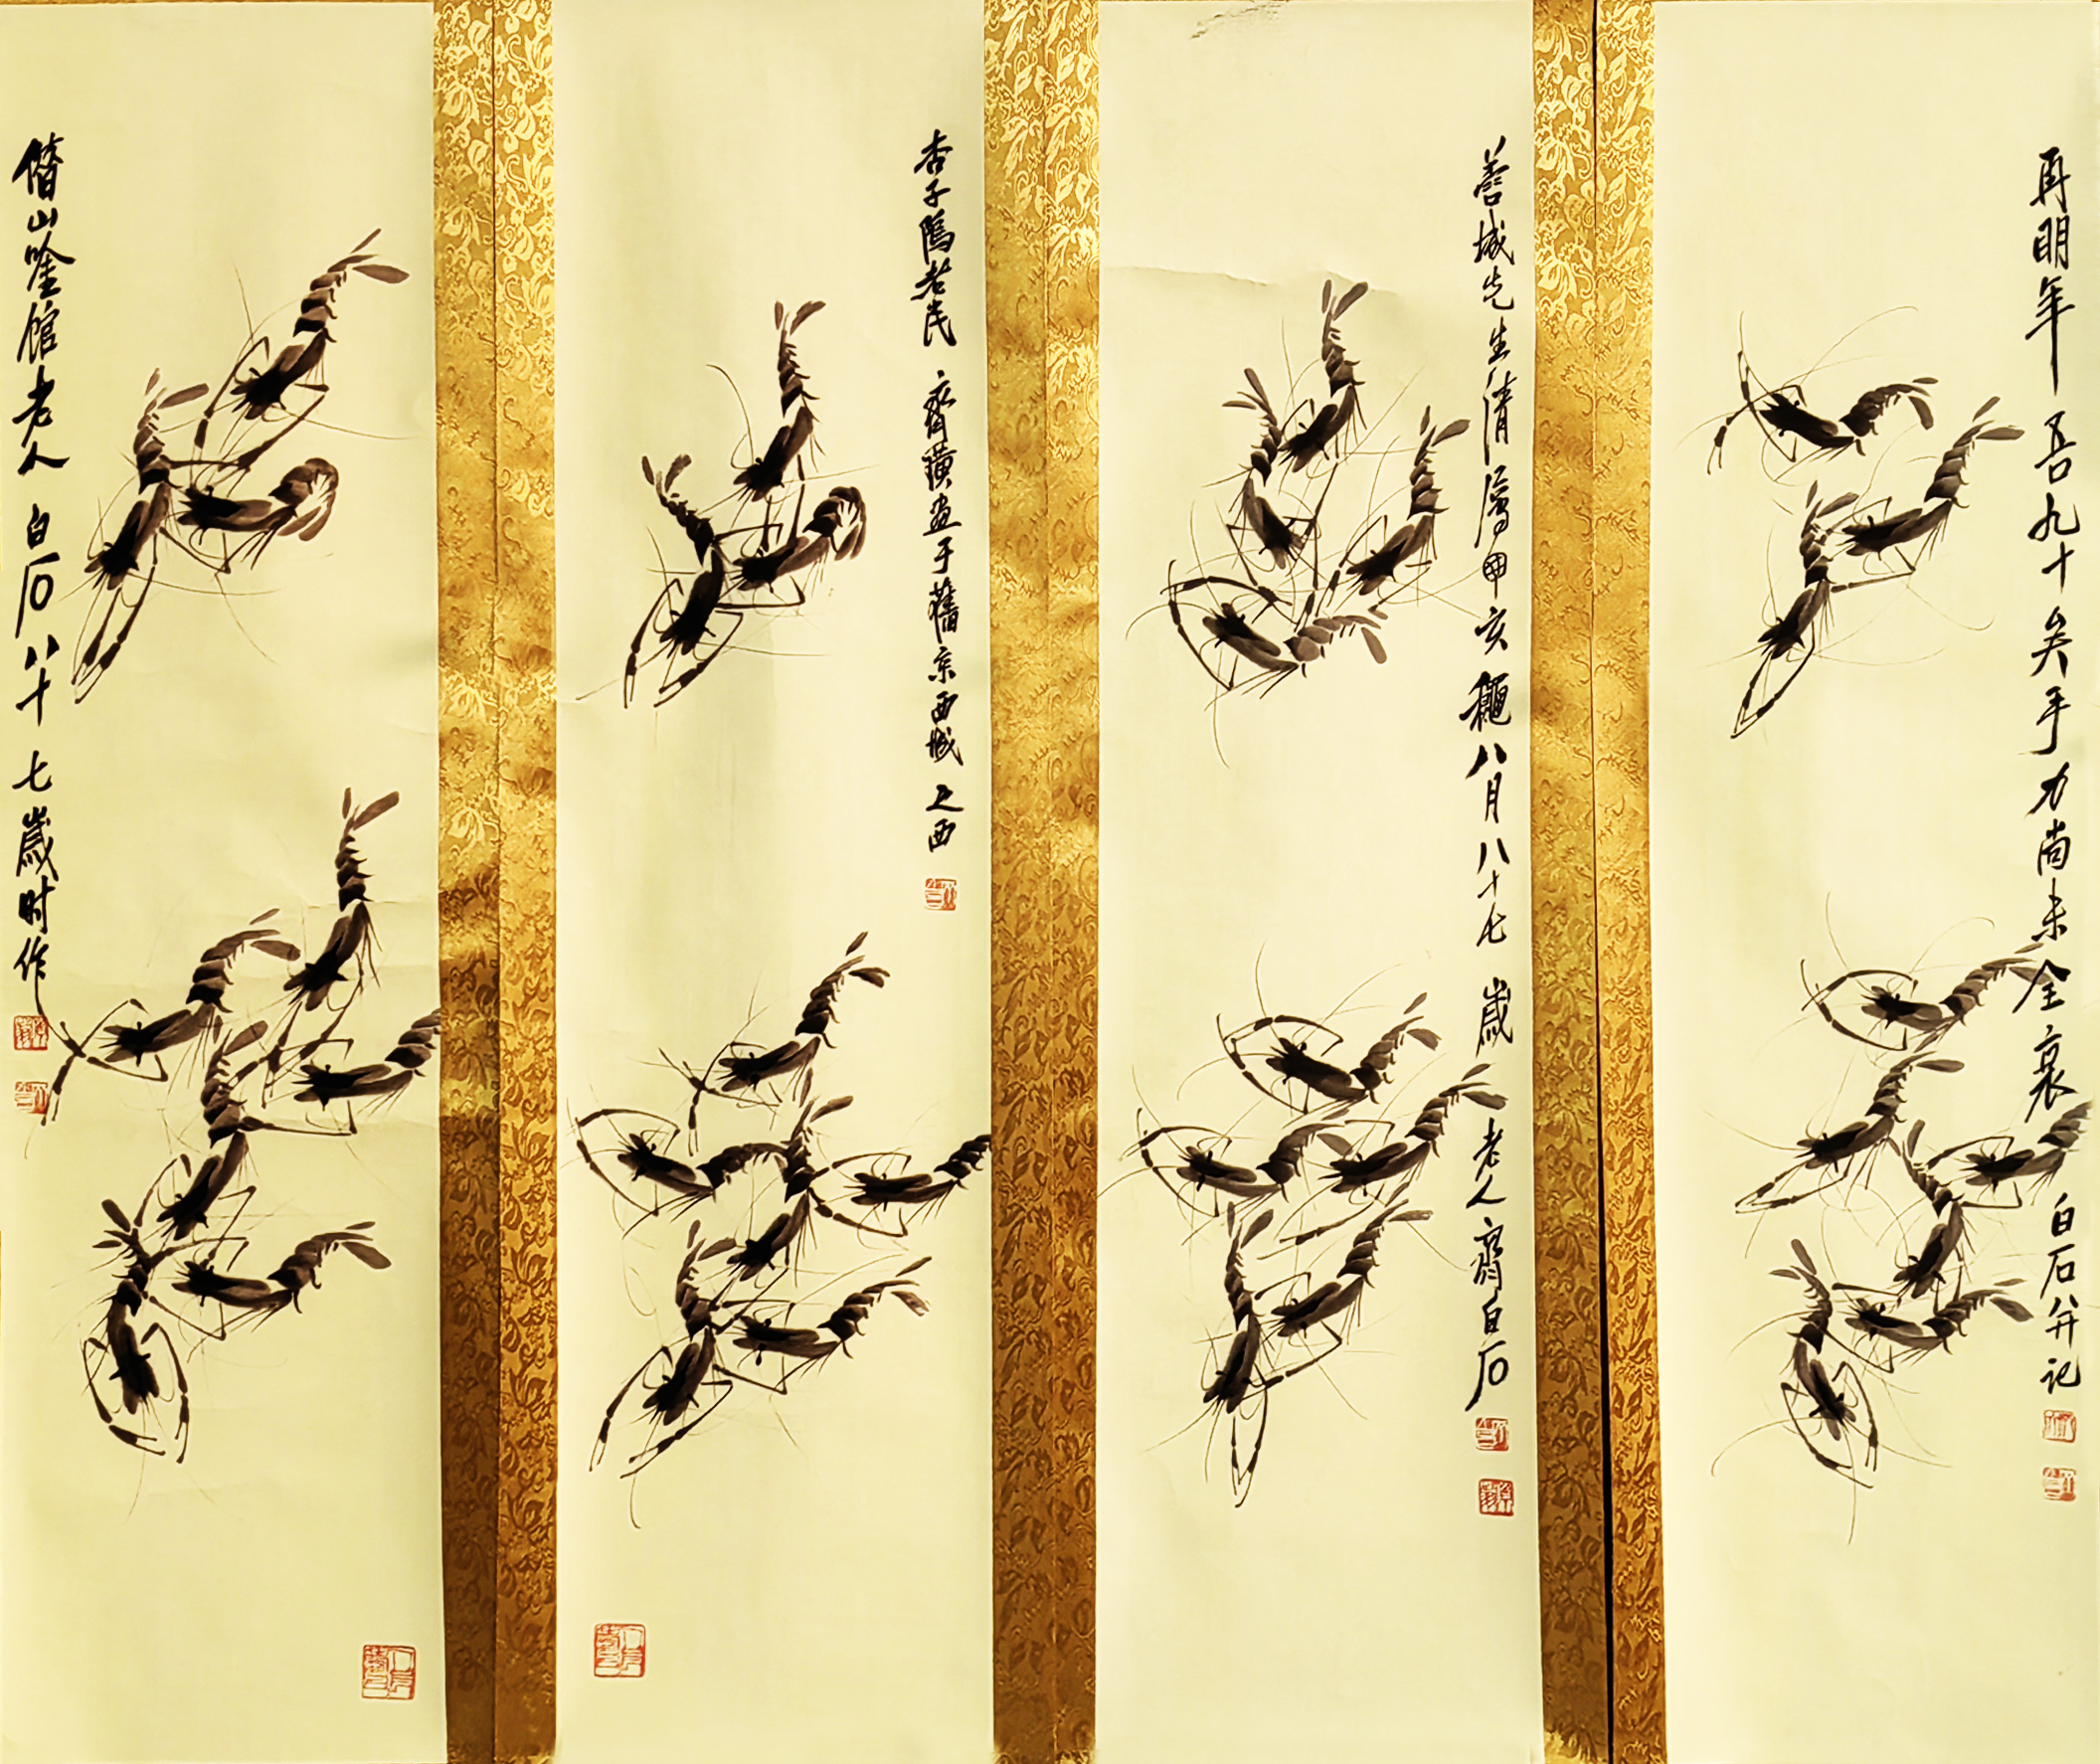 再明年吾九十矣手力尚未全衰 白石并记
善城先生清属 亥穐八月八十七歲老人齊白石
杏子隝老民 齊璜畫于舊京西城之西
借山唫館老人 白石八十七歲时作